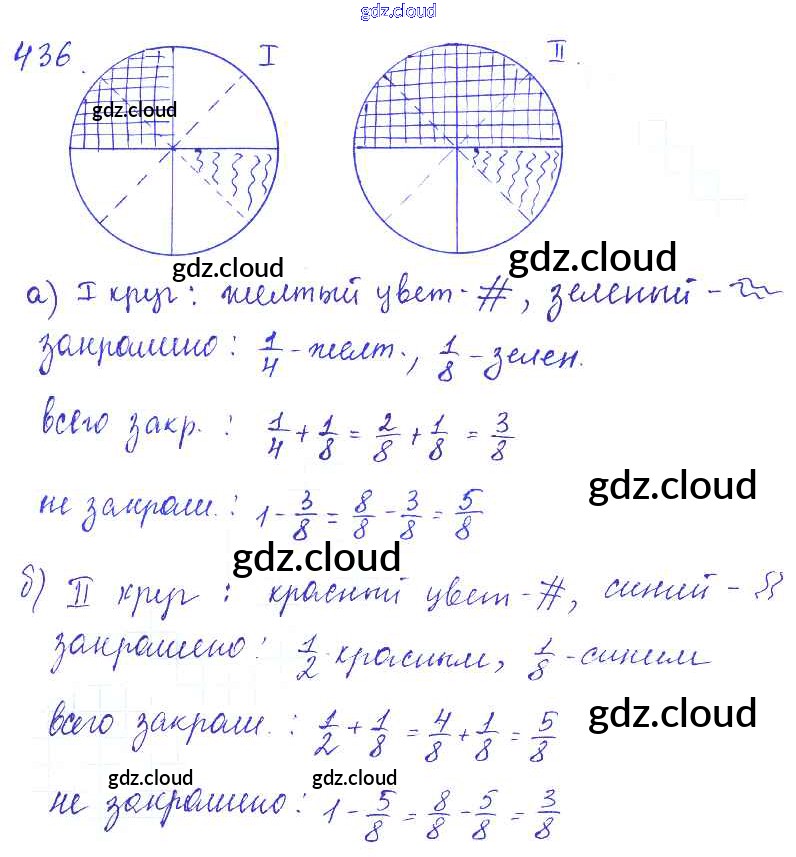 gdz.cloud
gdz.cloud
436. I II.
gdz.cloud
gdz.cloud
gdz.cloud
а) I круг: желтый цвет - #, зеленый -
закрашено: 1/4 - желт., 1/8 - зелен.
всего закр.: 1/4 + 1/8 = 2/8 + 1/8 = 3/8
gdz.cloud
не закраш.: 1 - 3/8 = 8/8 - 3/8 = 5/8
gdz.cloud
б) II круг: красный цвет - #, синий -
закрашено: 1/2 - красным, 1/8 - синим
gdz.cloud
всего закраш.: 1/2 + 1/8 = 4/8 + 1/8 = 5/8
gdz.cloud gdz.cloud
не закрашено: 1 - 5/8 = 8/8 - 5/8 = 3/8